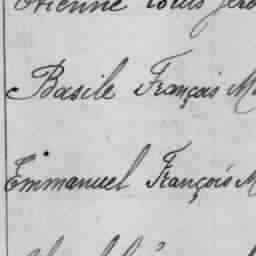 Etienne Louis
Basile François M
Emmanuel François M